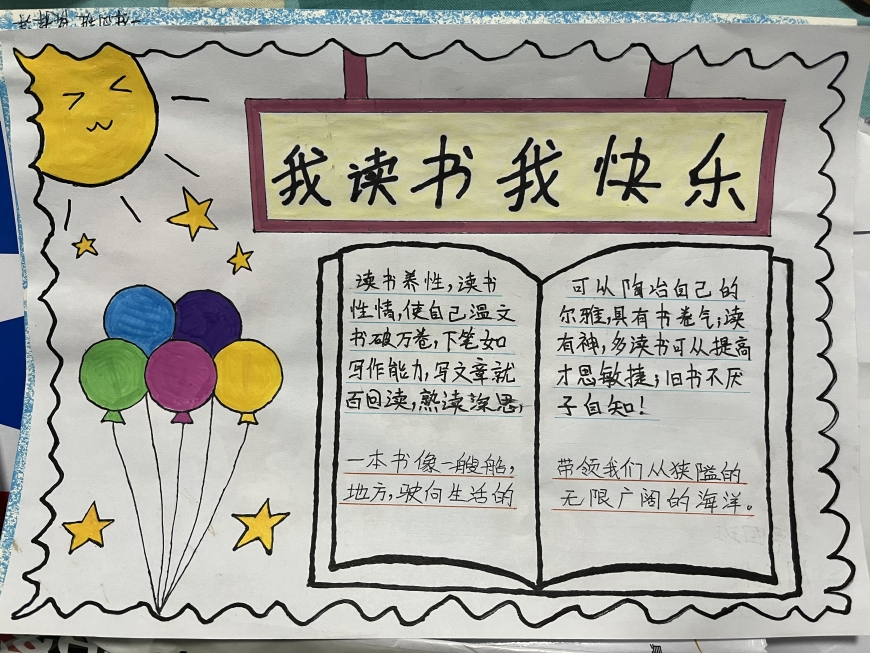 我读书我快乐
读书养性,读书 可从陶冶自己的
性情,使自己温文 尔雅,具有书卷气;读
书破万卷,下笔如 有神,多读书可从提高
写作能力,写文章就 才思敏捷;旧书不厌
百回读,熟读深思, 子自知!
一本书像一艘船, 带领我们从狭隘的
地方,驶向生活的 无限广阔的海洋。